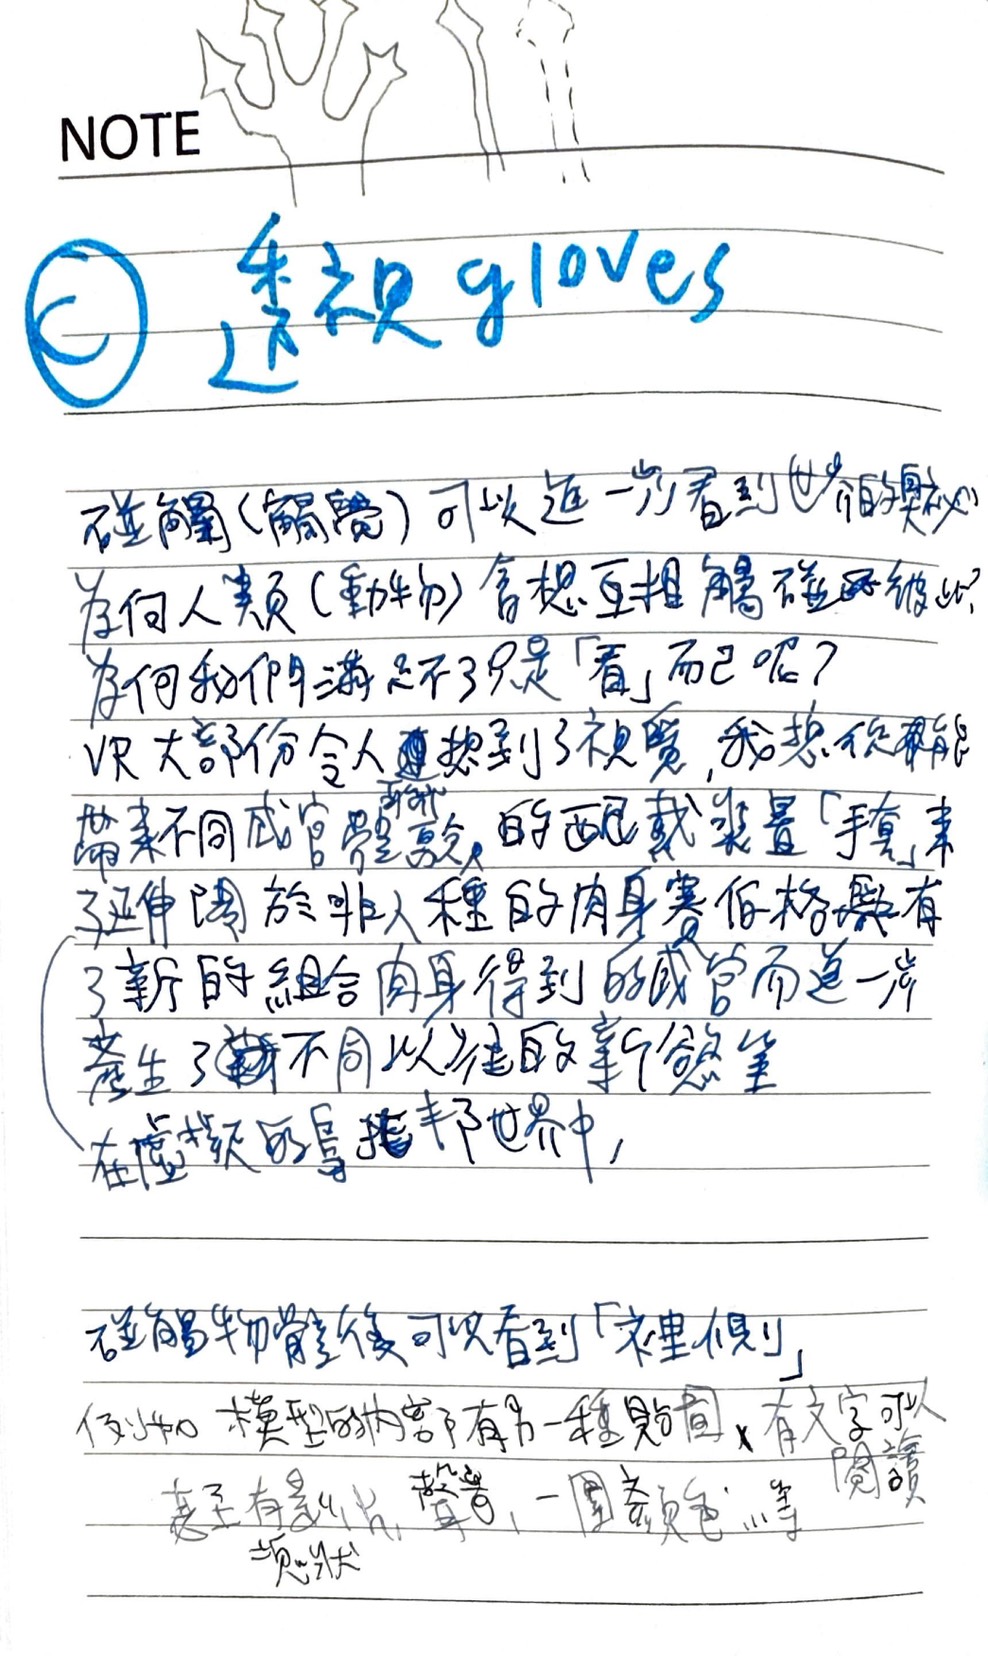 NOTE
C 透視 gloves
碰觸(觸覺)可以進一步看到世界的奧秘
為何人類(動物)會想互相觸碰彼此?
為何我們滿足不了只是「看」而已呢?
VR大部份令人連想到了視覺,我想做個能
帶來不同感官體驗的配戴裝置「手套」來
了延伸關於非人種的肉身賽伯格擁有
了新的組合肉身得到的感官而進一步
產生了不同以往的新慾望
在虛擬的烏托邦世界中,
碰觸物體後可以看到「裡側」
例如 模型的內部有另一種貼圖、有文字可以
閱讀
甚至有影片,聲音,一團顏色…等
塊狀